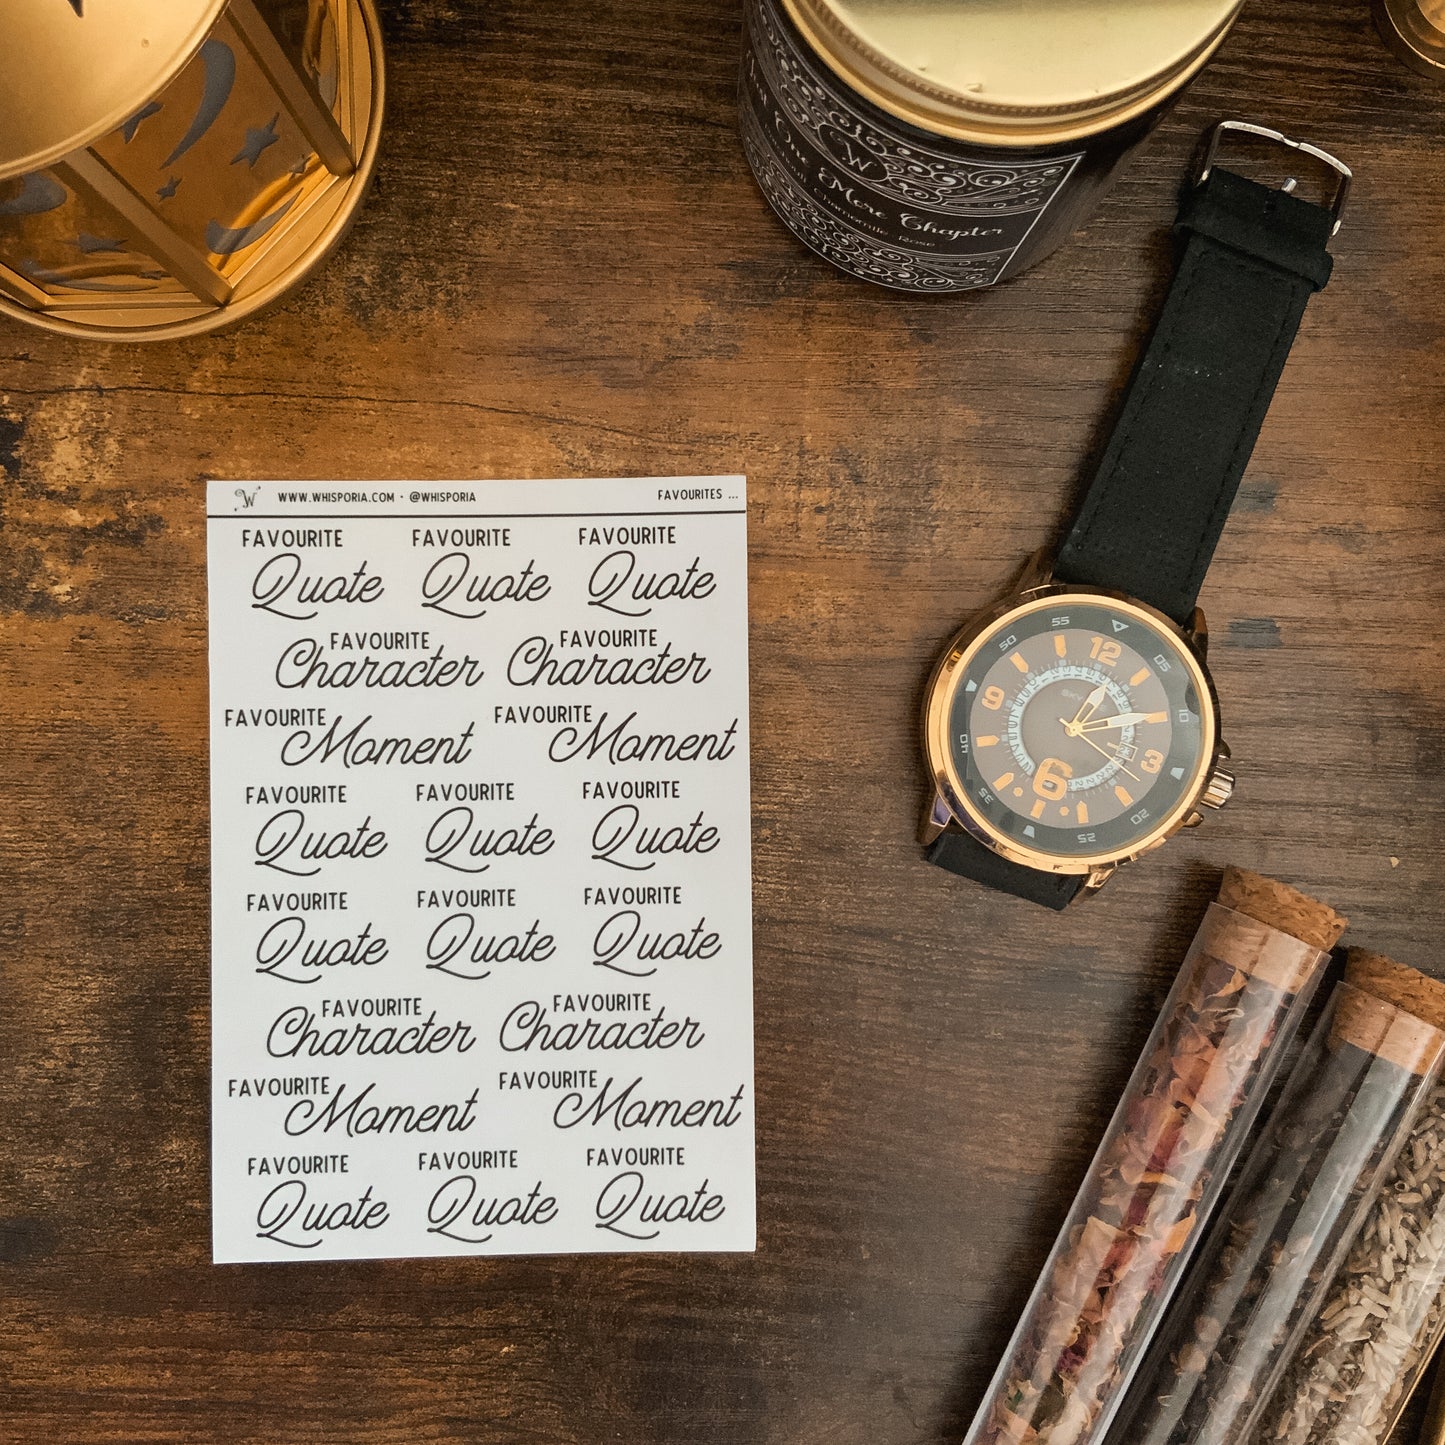 W
One More Chapter
Chamomile, Rose
W WWW.WHISPORIA.COM • @WHISPORIA FAVOURITES ...
FAVOURITE FAVOURITE FAVOURITE
Quote Quote Quote
FAVOURITE FAVOURITE
Character Character
FAVOURITE FAVOURITE
Moment Moment
FAVOURITE FAVOURITE FAVOURITE
Quote Quote Quote
FAVOURITE FAVOURITE FAVOURITE
Quote Quote Quote
FAVOURITE FAVOURITE
Character Character
FAVOURITE FAVOURITE
Moment Moment
FAVOURITE FAVOURITE FAVOURITE
Quote Quote Quote
55 05 10 20 25 35 40 50
12 3 6 9